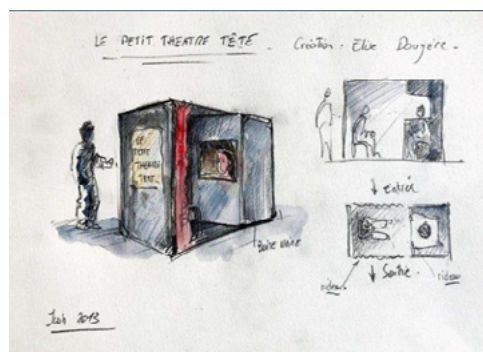 LE PETIT THEATRE TÊTE _ Création. Elise Dougère _
LE
PETIT
THEATRE
TETE
Boîte Noire
Entrée
Sortie.
rideau
rideau
Juin 2013